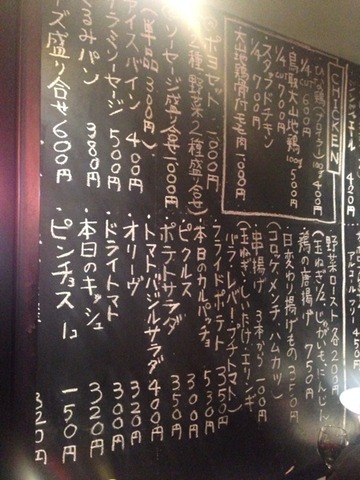 CHICKEN
ひな鶏(ブロイラー) 100g 400円
1/4 CUT 600円
・鳥取大山地鶏 100g 500円
1/4 CUT 700円
スタッフドチキン
1/4 700円
大山地鶏骨付モモ肉
1000円
ホヨセット 1000円
2種野菜2種盛合せ)
ソーセージ盛り合せ 1000円
(単品 300円)
アイスバイン 400円
ラミソーセージ 500円
るみパン 380円
ズ盛り合せ 600円
420円
450円
・野菜ロースト各200円
(玉ねぎ
・鶏の唐揚げ 750円
・日変わり揚げもの 350円
(コロッケ、メンチ、ハムカツ)
・串揚げ 3本から 100円
(玉ねぎ、しいたけ、エリンギ
バラ、レバー、プチトマト)
フライドポテト 350円
本日のカルパッチョ 530円
ピクルス 300円
ポテトサラダ 350円
トマトバジルサラダ 400円
オリーヴ 320円
・ドライトマト 300円
・本日のキッシュ 320円
・ピンチョス 150円
320円